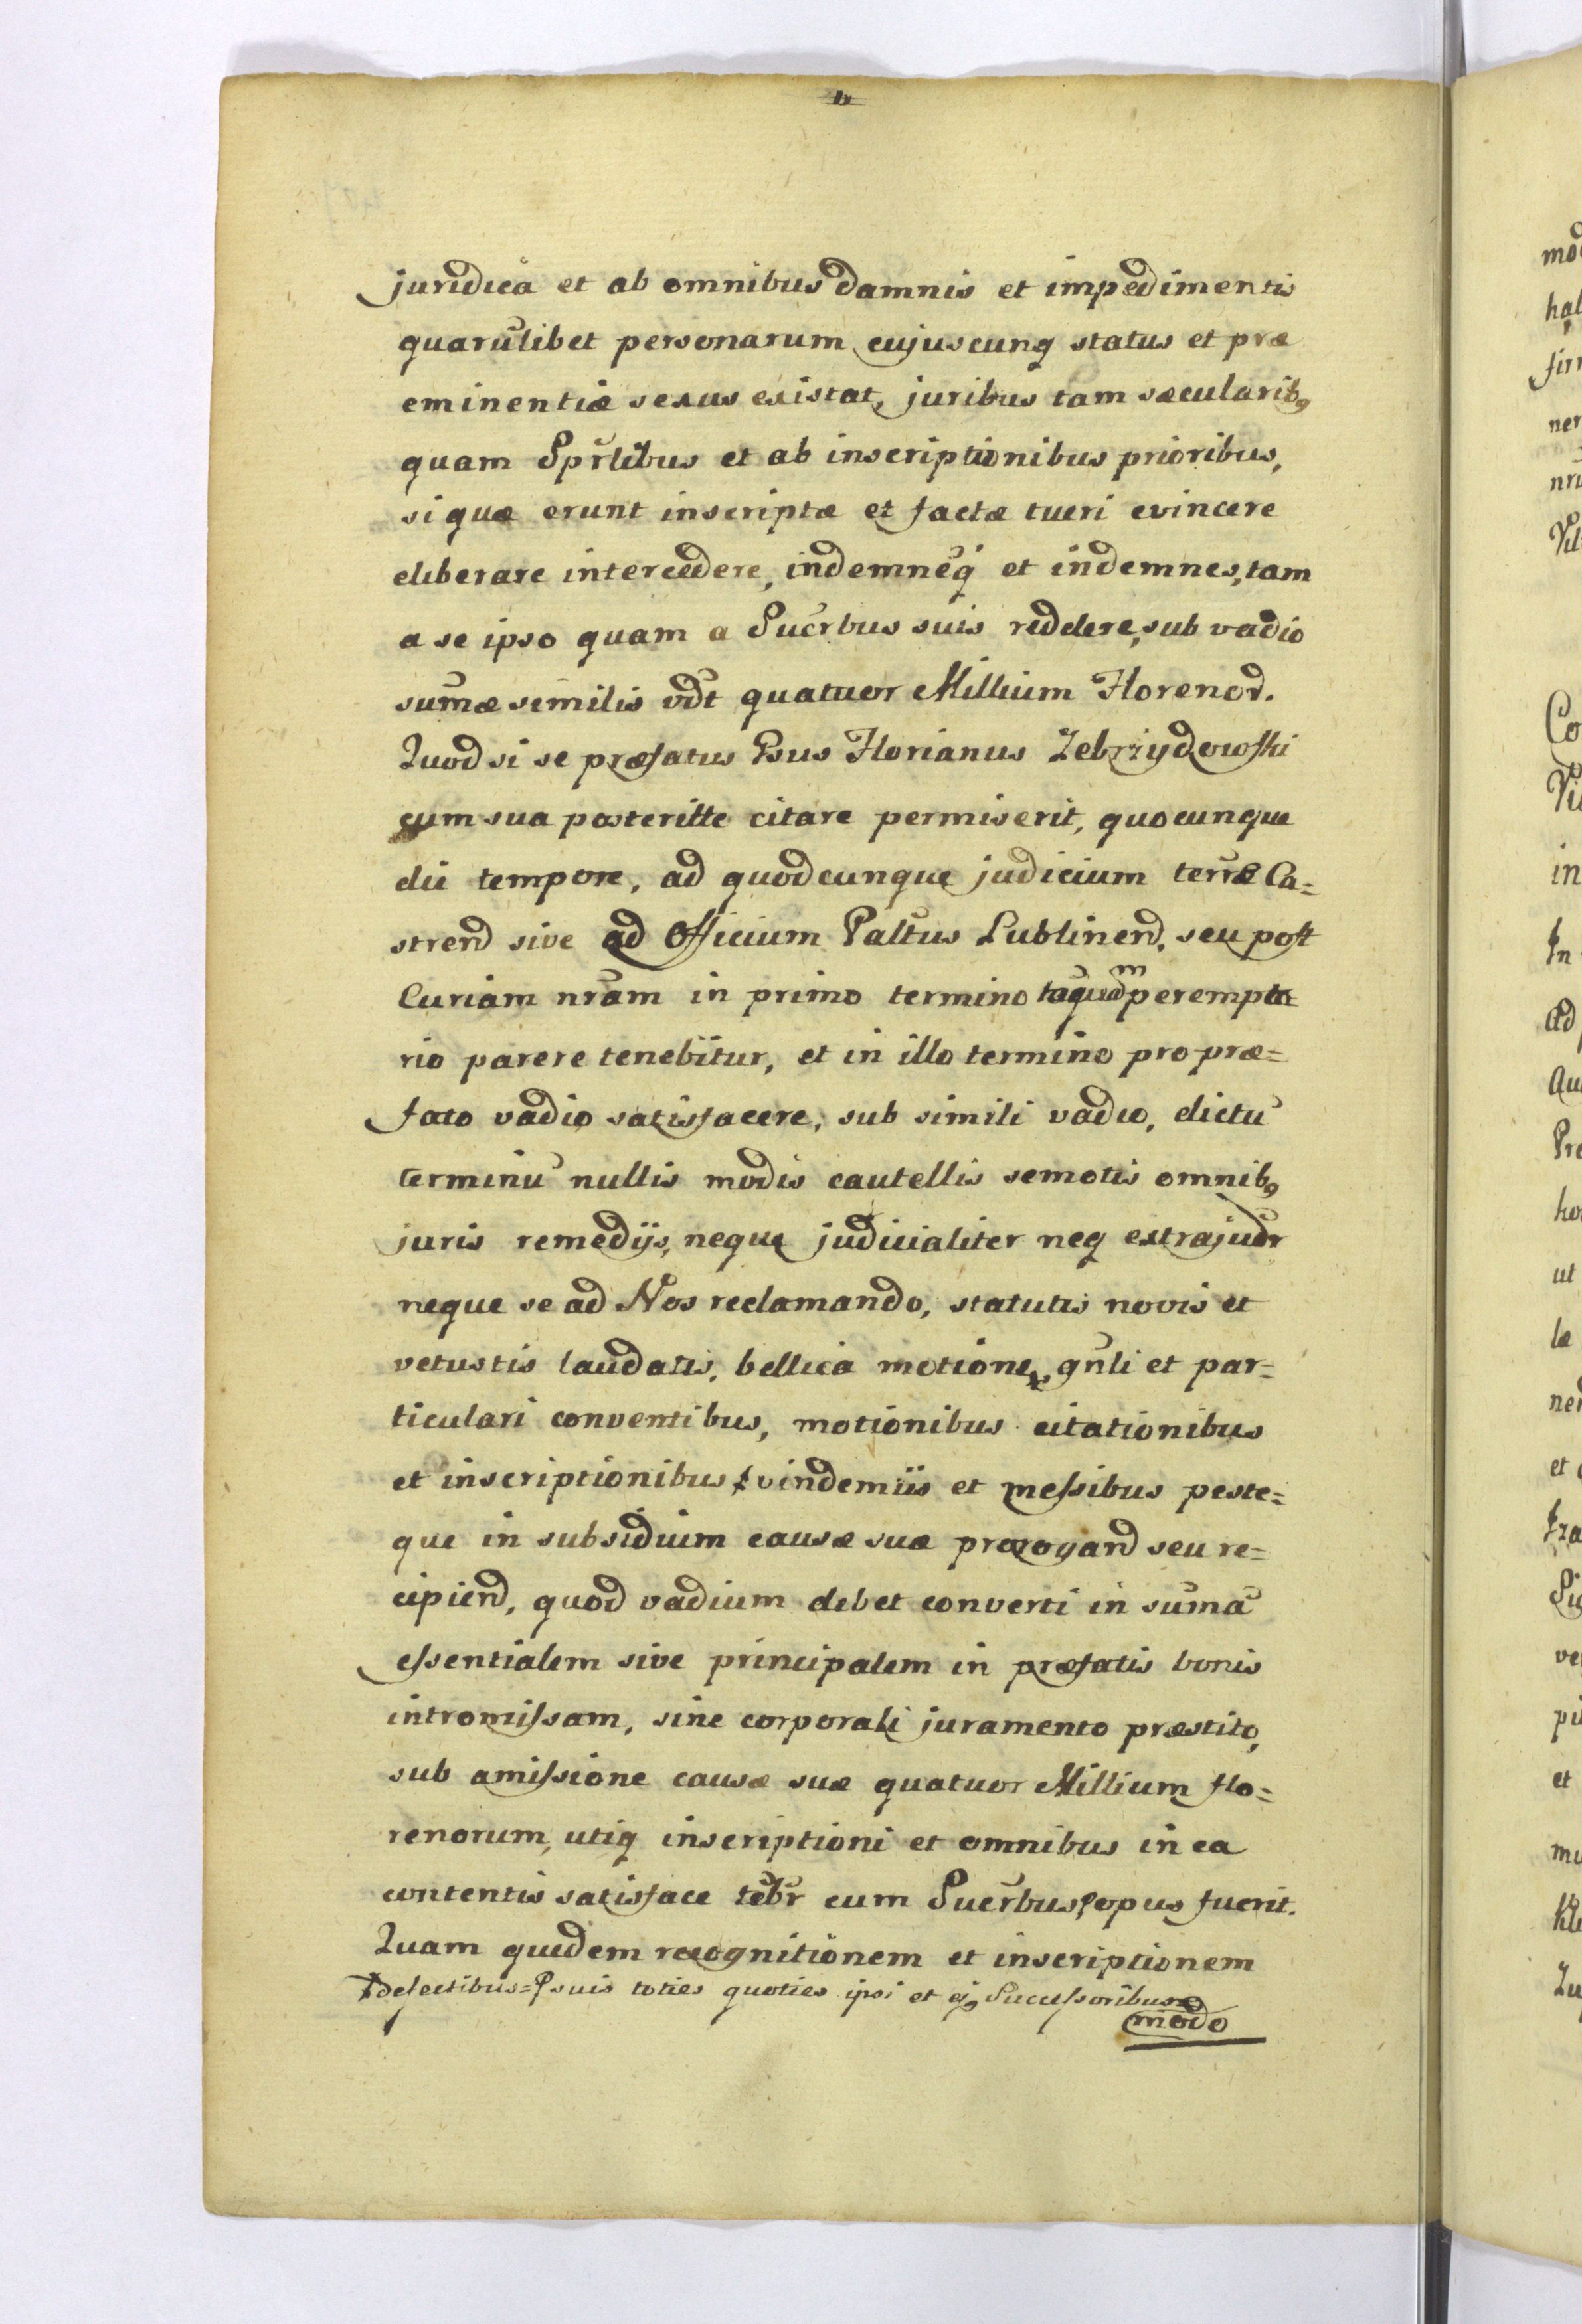 juridicâ et ab omnibus damnis et impedimentis
quarūlibet personarum cujuscunq status et præ
eminentiæ sexus existat, juribus tam sæcularibꝰ
quam Spr̄libus et ab inscriptionibus prioribus,
si quæ erunt inscriptæ et factæ tueri evincere
eliberare intercedere, indemnēq et indemnes, tam
a se ipso quam a Suc̄rbus suis reddere, sub vadio
sum̄æ similis vd̄t quatuor Millium Florenor̄.
Quod si se præfatus Gsus Florianus Zebrzydowski
cum sua posteritte citare permiserit, quocunque
die tempore, ad quodcunque judicium terr̄æ Ca=
strend sive ad Officium Paltūs Lublinend, seu post
Curiam nr̄am in primo termino taqūam perempto
rio parere tenebitur, et in illo termino pro præ=
fato vadio satisfacere, sub simili vadio, dictū
terminū nullis modis cautellis semotis omnibꝰ
juris remedijs, neque judicialiter neq extrajudr
neque se ad Nos reclamando, statutis novis et
vetustis laudatis, bellica motione, gn̄li et par=
ticulari conventibus, motionibus citationibus
et inscriptionibus ⸸ vindemiis et messibus peste=
que in subsidium causæ suæ prorogand seu re=
cipiend, quod vadium debet converti in sum̄ā
essentialem sive principalem in præfatis bonis
intromissam, sine corporali juramento præstito,
sub amissione causæ suæ quatuor Millium flo=
renorum, utiq inscriptioni et omnibus in ea
contentis satisface tēbr cum Suc̄rbus ꝑ opus fuerit.
Quam quidem recognitionem et inscriptionem
⸸ defectibus = ꝑ suis toties quoties ipsi et ejꝰ Successoribus
modo